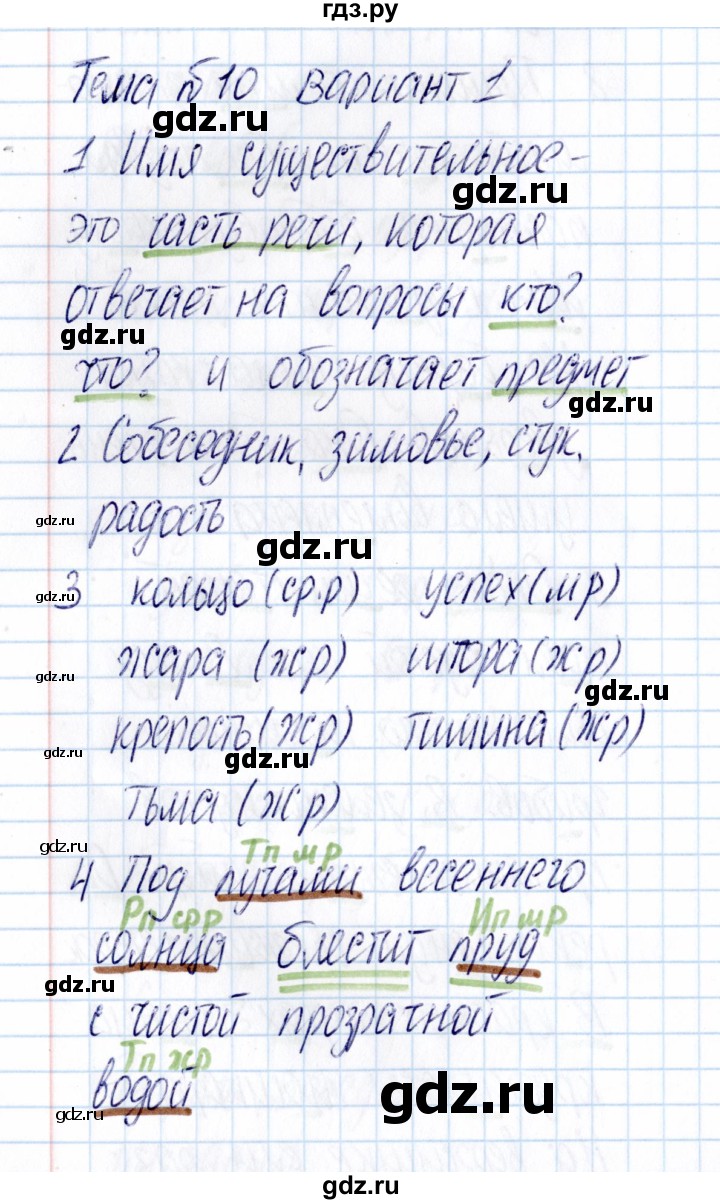 гдз.ру
Тема №10 вариант 1
gdz.ru
1 Имя существительное -
gdz.ru
это часть речи, которая
отвечает на вопросы кто?
gdz.ru
что? и обозначает предмет
gdz.ru
2 Собеседник, зимовье, стук,
gdz.ru
радость
gdz.ru
gdz.ru
3 кольцо (ср.р) успех (мр)
gdz.ru
жара (жр) штора (жр)
gdz.ru
крепость (жр) тишина (жр)
gdz.ru
gdz.ru
тьма (жр)
gdz.ru
Тп мр
4 Под лучами весеннего
Рп срр Ип мр
солнца блестит пруд
gdz.ru
с чистой прозрачной
Тп жр
водой
gdz.ru
gdz.ru
gdz.ru